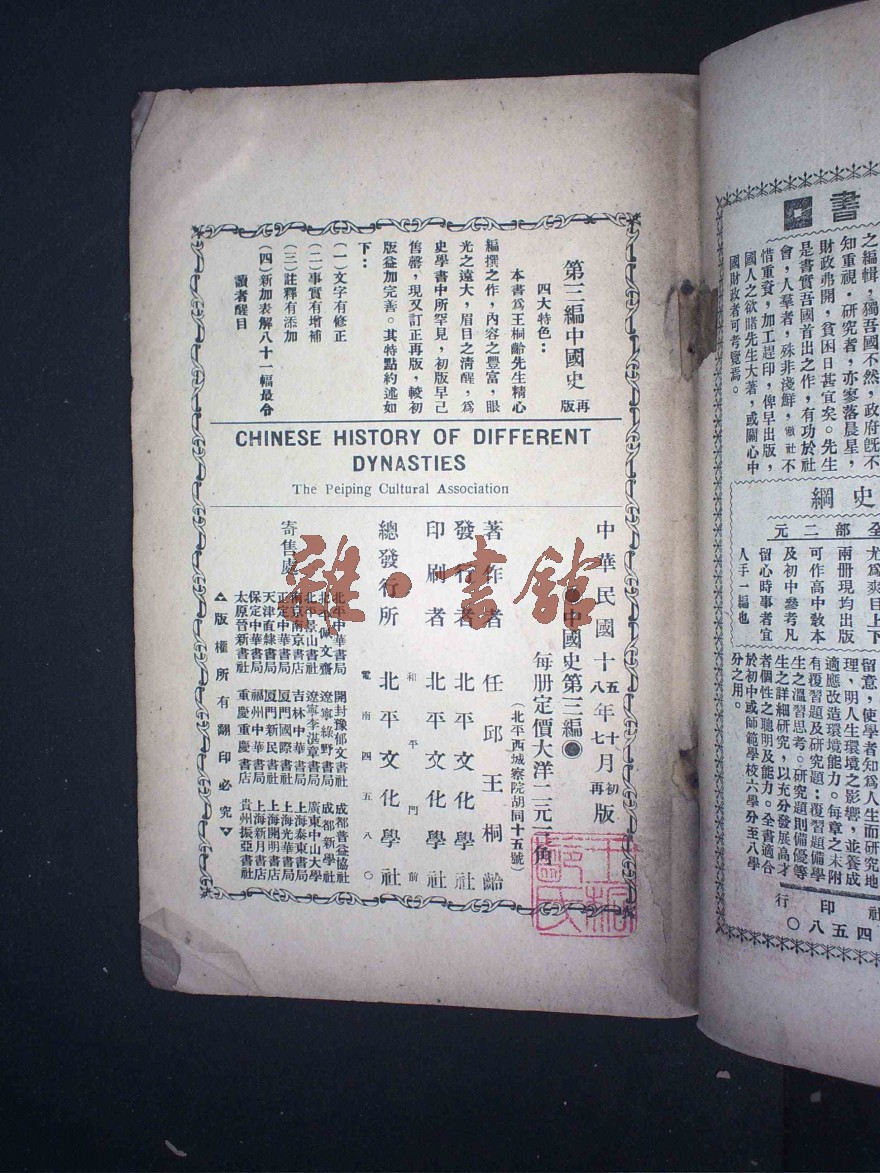 第三編中國史再版
四大特色：
本書爲王桐齡先生精心
編撰之作，內容之豐富，眼
光之遠大，眉目之清醒，爲
史學書中所罕見，初版早已
售罄，現又訂正再版，較初
版益加完善。其特點約述如
下：
（一）文字有修正
（二）事實有增補
（三）註釋有添加
（四）新加表解八十一幅最令
讀者醒目
CHINESE HISTORY OF DIFFERENT
DYNASTIES
The Peiping Cultural Association
中華民國十五年十月初版
十八年七月再版
中國史第三編
每册定價大洋二元二角
（北平西城察院胡同十五號）
著作者 任邱王桐齡
發行者 北平文化學社
印刷者 北平文化學社
和平門前
總發行所 北平文化學社
電南四五八〇
寄售處
北平中華書局 開封豫郁文書社 成都普益協社
北平佩文齋 遼寧綠野書局 成都新學社
北平景山書社 遼寧李湛章書局 廣東中山大學
南京南京書店 吉林中華書局 上海泰東書局
正定中華書局 厦門國際書社 上海光華書局
天津直隸書局 厦門新民書社 上海開明書店
保定中華書局 福州中華書局 上海新月書店
太原晉新書社 重慶重慶書店 貴州振亞書社
版權所有翻印必究
雜·書館
書
之編輯，獨吾國不然，政府旣不
知重視，研究者，亦寥落晨星，
財政弗開，貧困日甚宜矣。先生
是書實吾國首出之作，有功於社
會，人羣者，殊非淺鮮，敝社不
惜重資，加工趕印，俾早出版，
國人之欲睹先生大著，或關心中
國財政者可考覽焉。
史綱
全部二元
尤爲爽目上下
兩册現均出版
可作高中敎本
及初中參考凡
留心時事者宜
人手一編也
留意，使學者知爲人生而研究地
理，明人生環境之影響，並養成
適應改造環境能力。每章之末附
有復習題及研究題：復習題備學
生之溫習思考。研究題則備優等
生之詳細研究，以充分發展高才
者個性之聰明及能力。全書適合
於初中或師範學校六學分至八學
分之用。
社印行
四五八〇